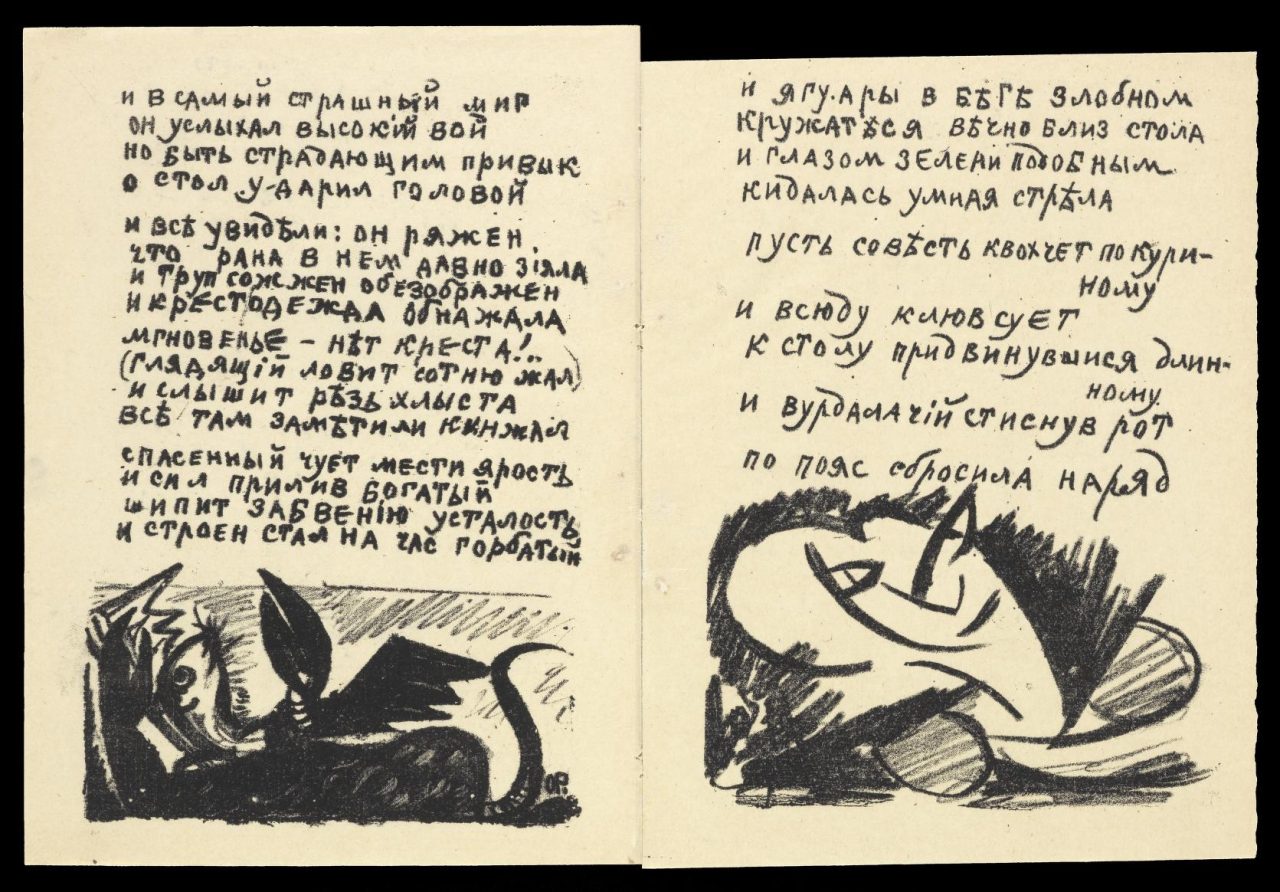 и в самый страшный миг
он услыхал высокій вой
но быть страдающим привык
о стол ударил головой
и всѣ увидѣли: он ряжен,
что рана в нем давно зіяла
и труп сожжен обезображен
и крест одежда обнажала
мгновенье – нѣт креста!..
(глядящій ловит сотню жал)
и слышит рѣзь хлыста
всѣ там замѣтили кинжал
спасенный чует мести ярость
и сил прилив богатый
шипит забвенію усталость
и строен стал на час горбатый
ОР.
и ягуары в бѣгѣ злобном
кружатѣся вѣчно близ стола
и глазом зелени подобным
кидалась умная стрѣла
пусть совѣсть квохчет по кури-
ному
и всюду клюв сует
к столу придвинувшися длин-
ному
и вурдалачій стиснув рот
по пояс сбросила наряд